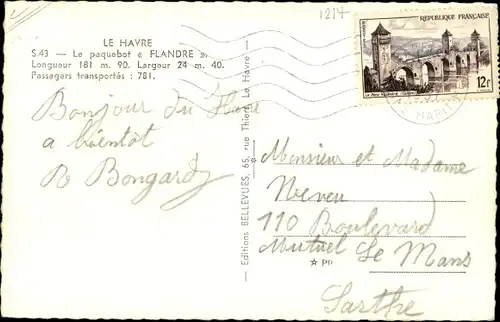 1214
LE HAVRE
S.43 — Le paquebot « FLANDRE ».
Longueur 181 m. 90. Largeur 24 m. 40.
Passagers transportés : 781.
REPUBLIQUE FRANÇAISE
12F
Bonjour du Havre
a bientôt
B Bongard
Editions BELLEVUES, 65, rue Thiers, Le Havre
Monsieur et Madame
Neveu
110 Boulevard
Mutuel Le Mans
Sarthe